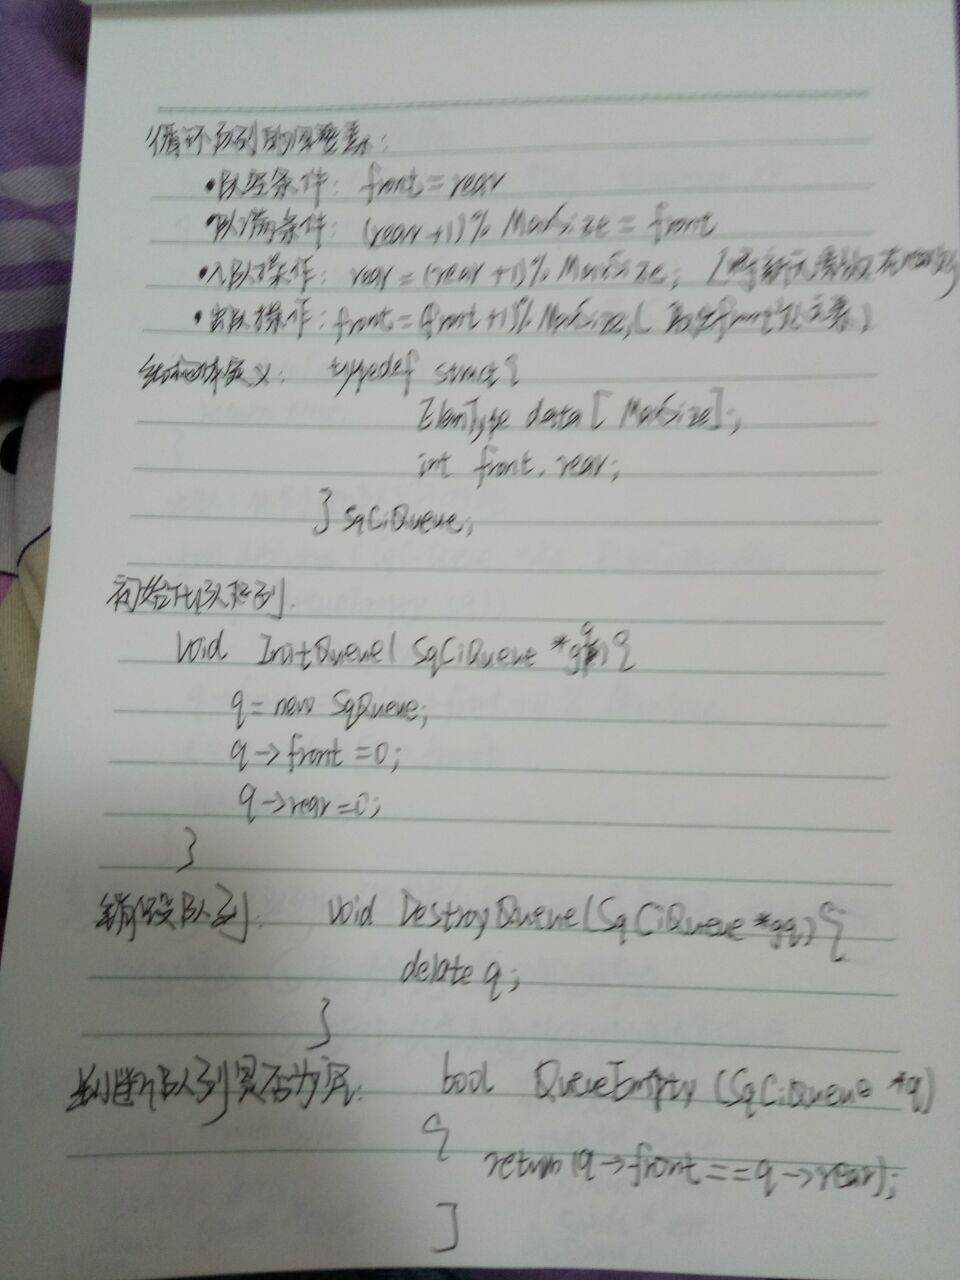 循环队列的四要素:
•队空条件: front=rear
•队满条件: (rear+1)% MaxSize=front
•入队操作: rear=(rear+1)% MaxSize; 将新元素放在rear处
•出队操作: front=(front+1)% MaxSize,( 取出front处元素)
结构体定义: typedef struct{
ElemType data[ MaxSize];
int front, rear;
} SqCiQueue;
初始化队列.
void InitQueue( SqCiQueue *q){
q= new SqQueue;
q->front=0;
q->rear=0;
}
销毁队列. void DestroyQueue(SqCiQueue *q){
delate q;
}
判断队列是否为空. bool QueueEmpty (SqCiQueue *q)
{
return (q->front==q->rear);
}